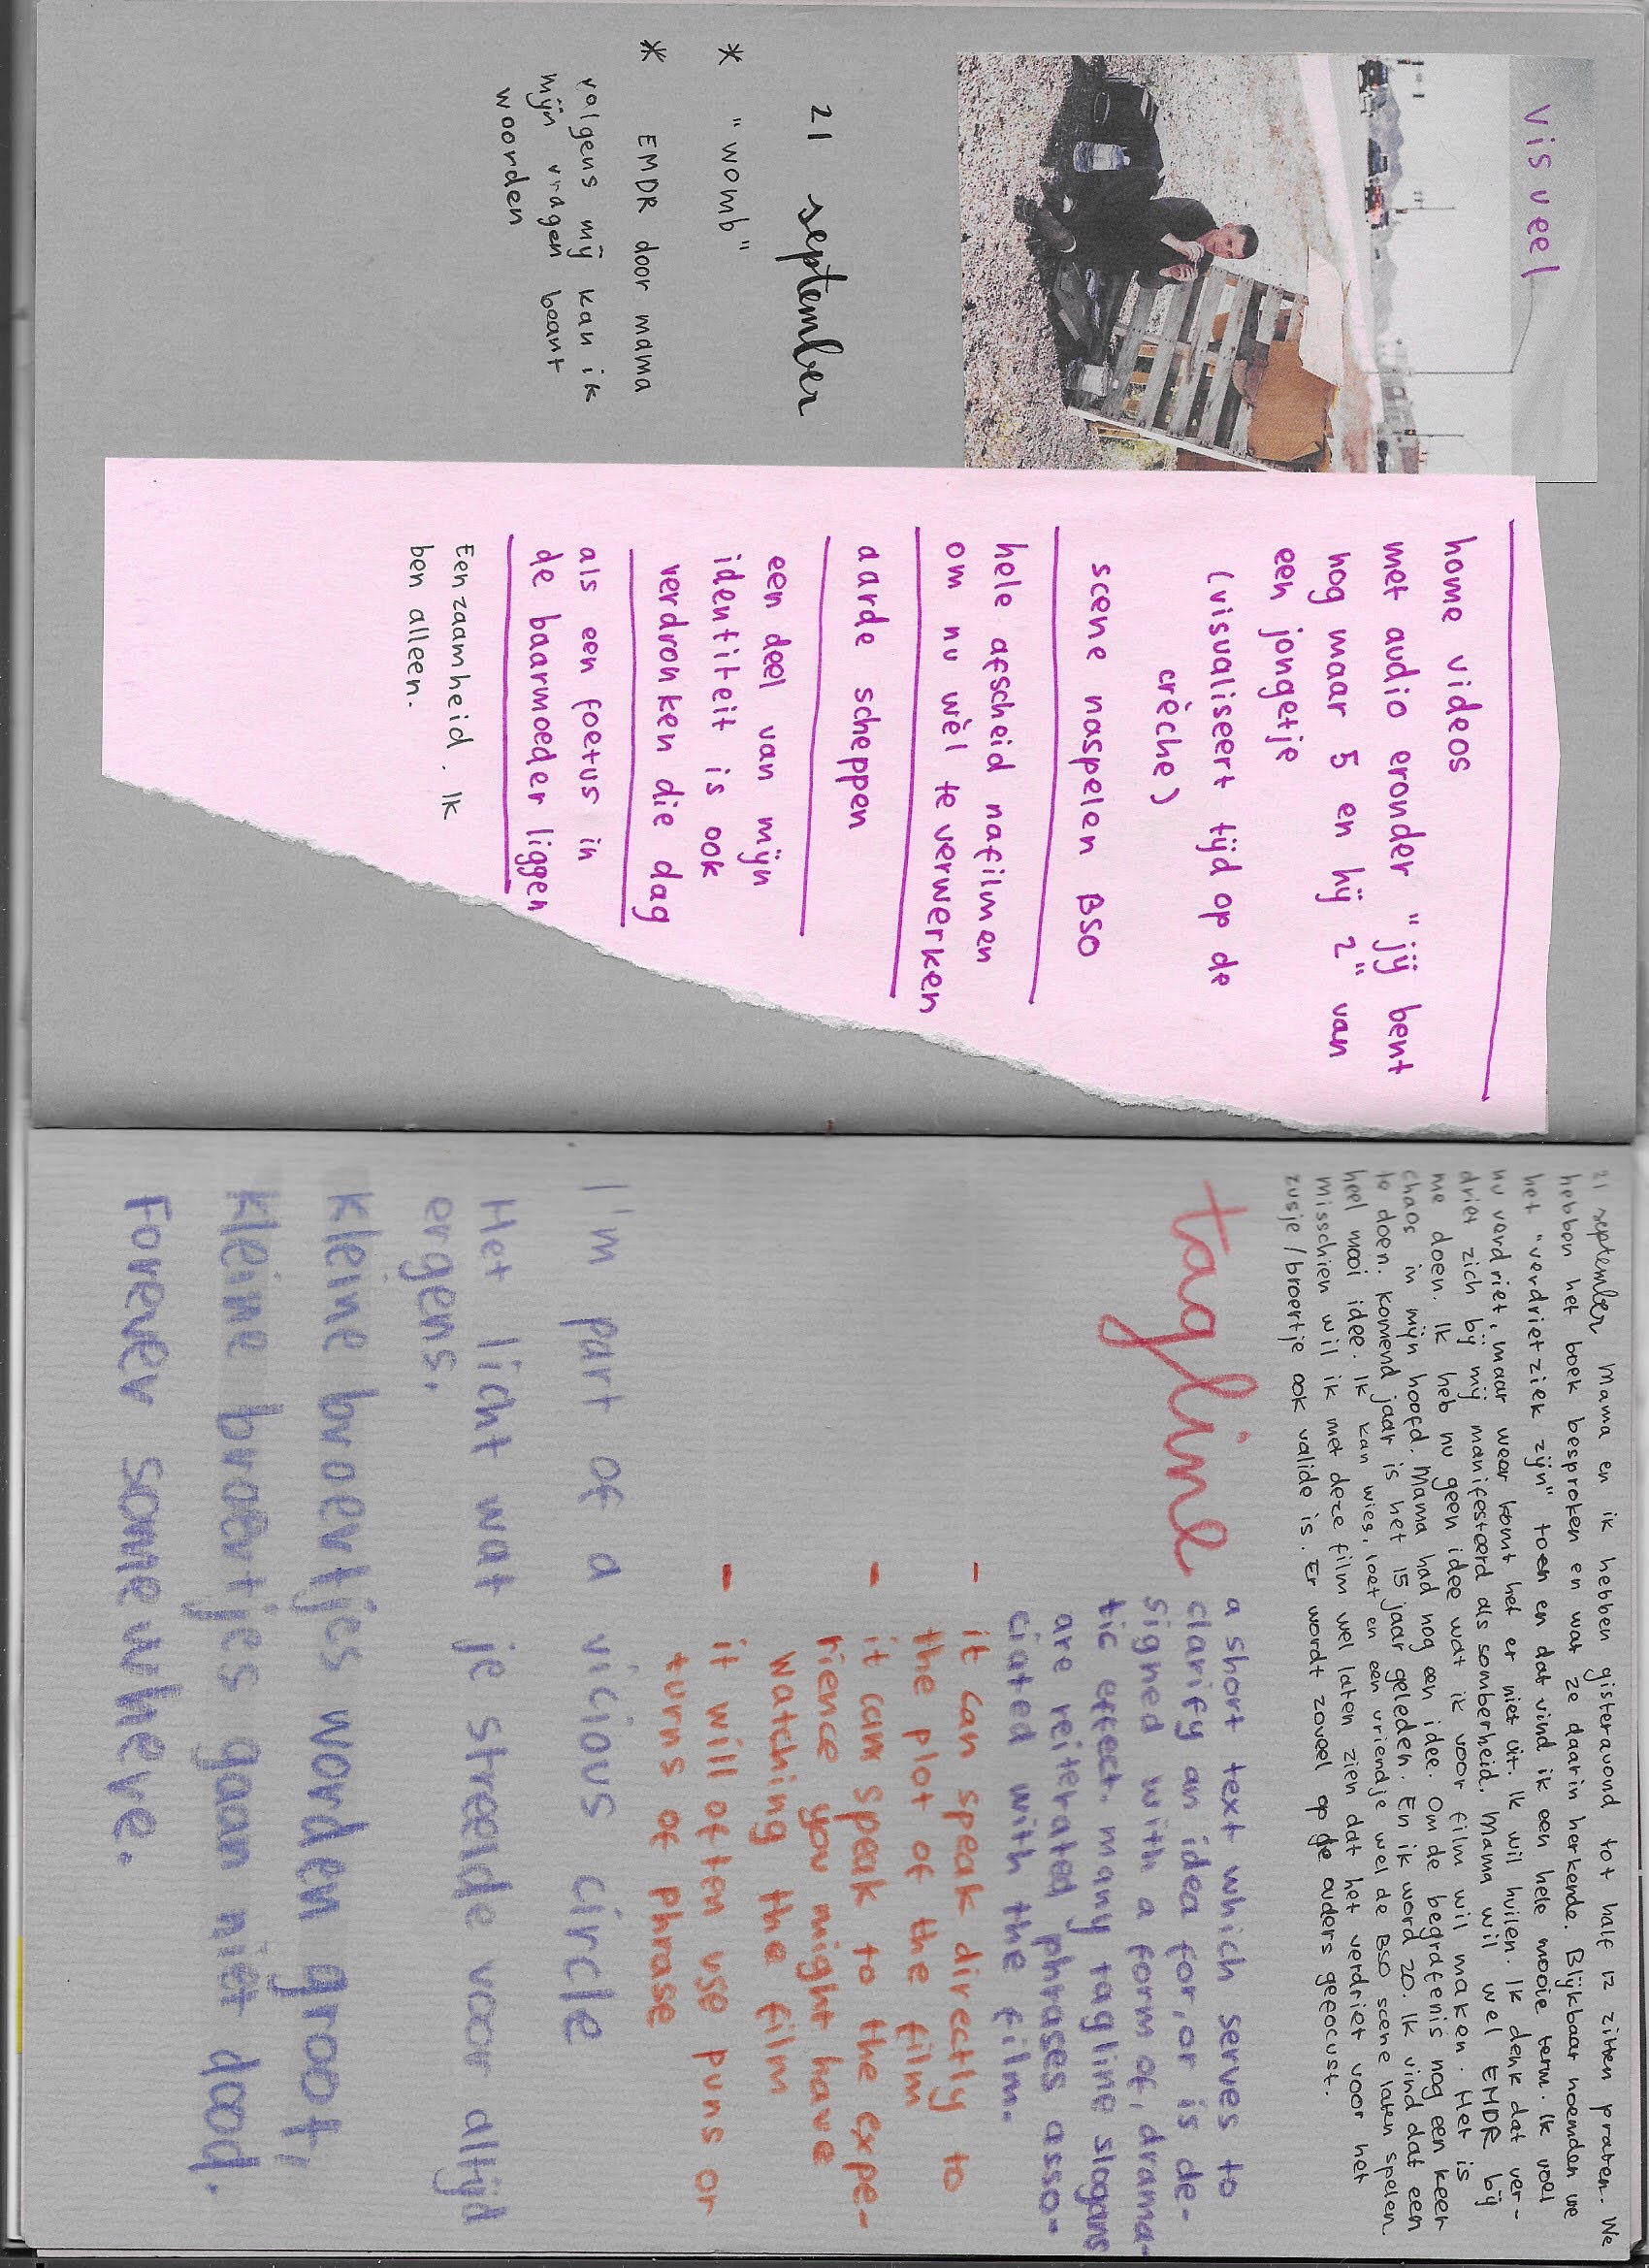 visueel
21 september
* "womb"
* EMDR door mama
volgens mij kan ik
mijn vragen beant
woorden
home videos
met audio eronder "jij bent
nog maar 5 en hij 2" van
een jongetje
(visualiseert tijd op de
crèche)
scene naspelen BSO
hele afscheid nafilmen
om nu wèl te verwerken
aarde scheppen
een deel van mijn
identiteit is ook
verdronken die dag
als een foetus in
de baarmoeder liggen
Eenzaamheid. Ik
ben alleen.
21 september Mama en ik hebben gisteravond tot half 12 zitten praten. We
hebben het boek besproken en wat ze daarin herkende. Blijkbaar noemden we
het "verdrietziek zijn" toen en dat vind ik een hele mooie term. Ik voel
nu verdriet, maar weer komt het er niet uit. Ik wil huilen. Ik denk dat ver-
driet zich bij mij manifesteerd als somberheid. Mama wil wel EMDR bij
me doen. Ik heb nu geen idee wat ik voor film wil maken. Het is
chaos in mijn hoofd. Mama had nog een idee. Om de begrafenis nog een keer
te doen. Komend jaar is het 15 jaar geleden. En ik word 20. Ik vind dat een
heel mooi idee. Ik kan wies, loet en een vriendje wel de BSO scene laten spelen
misschien wil ik met deze film wel laten zien dat het verdriet voor het
zusje/broertje ook valide is. Er wordt zoveel op de ouders gefocust.
tagline
a short text which serves to
clarify an idea for, or is de-
signed with a form of, drama-
tic effect. many tagline slogans
are reiterated phrases asso-
ciated with the film.
- it can speak directly to
the plot of the film
- it can speak to the expe-
rience you might have
watching the film
- it will often use puns or
turns of phrase
I'm part of a vicious circle
Het licht wat je streelde voor altijd
ergens.
kleine broertjes worden groot,
kleine broertjes gaan niet dood.
Forever somewhere.